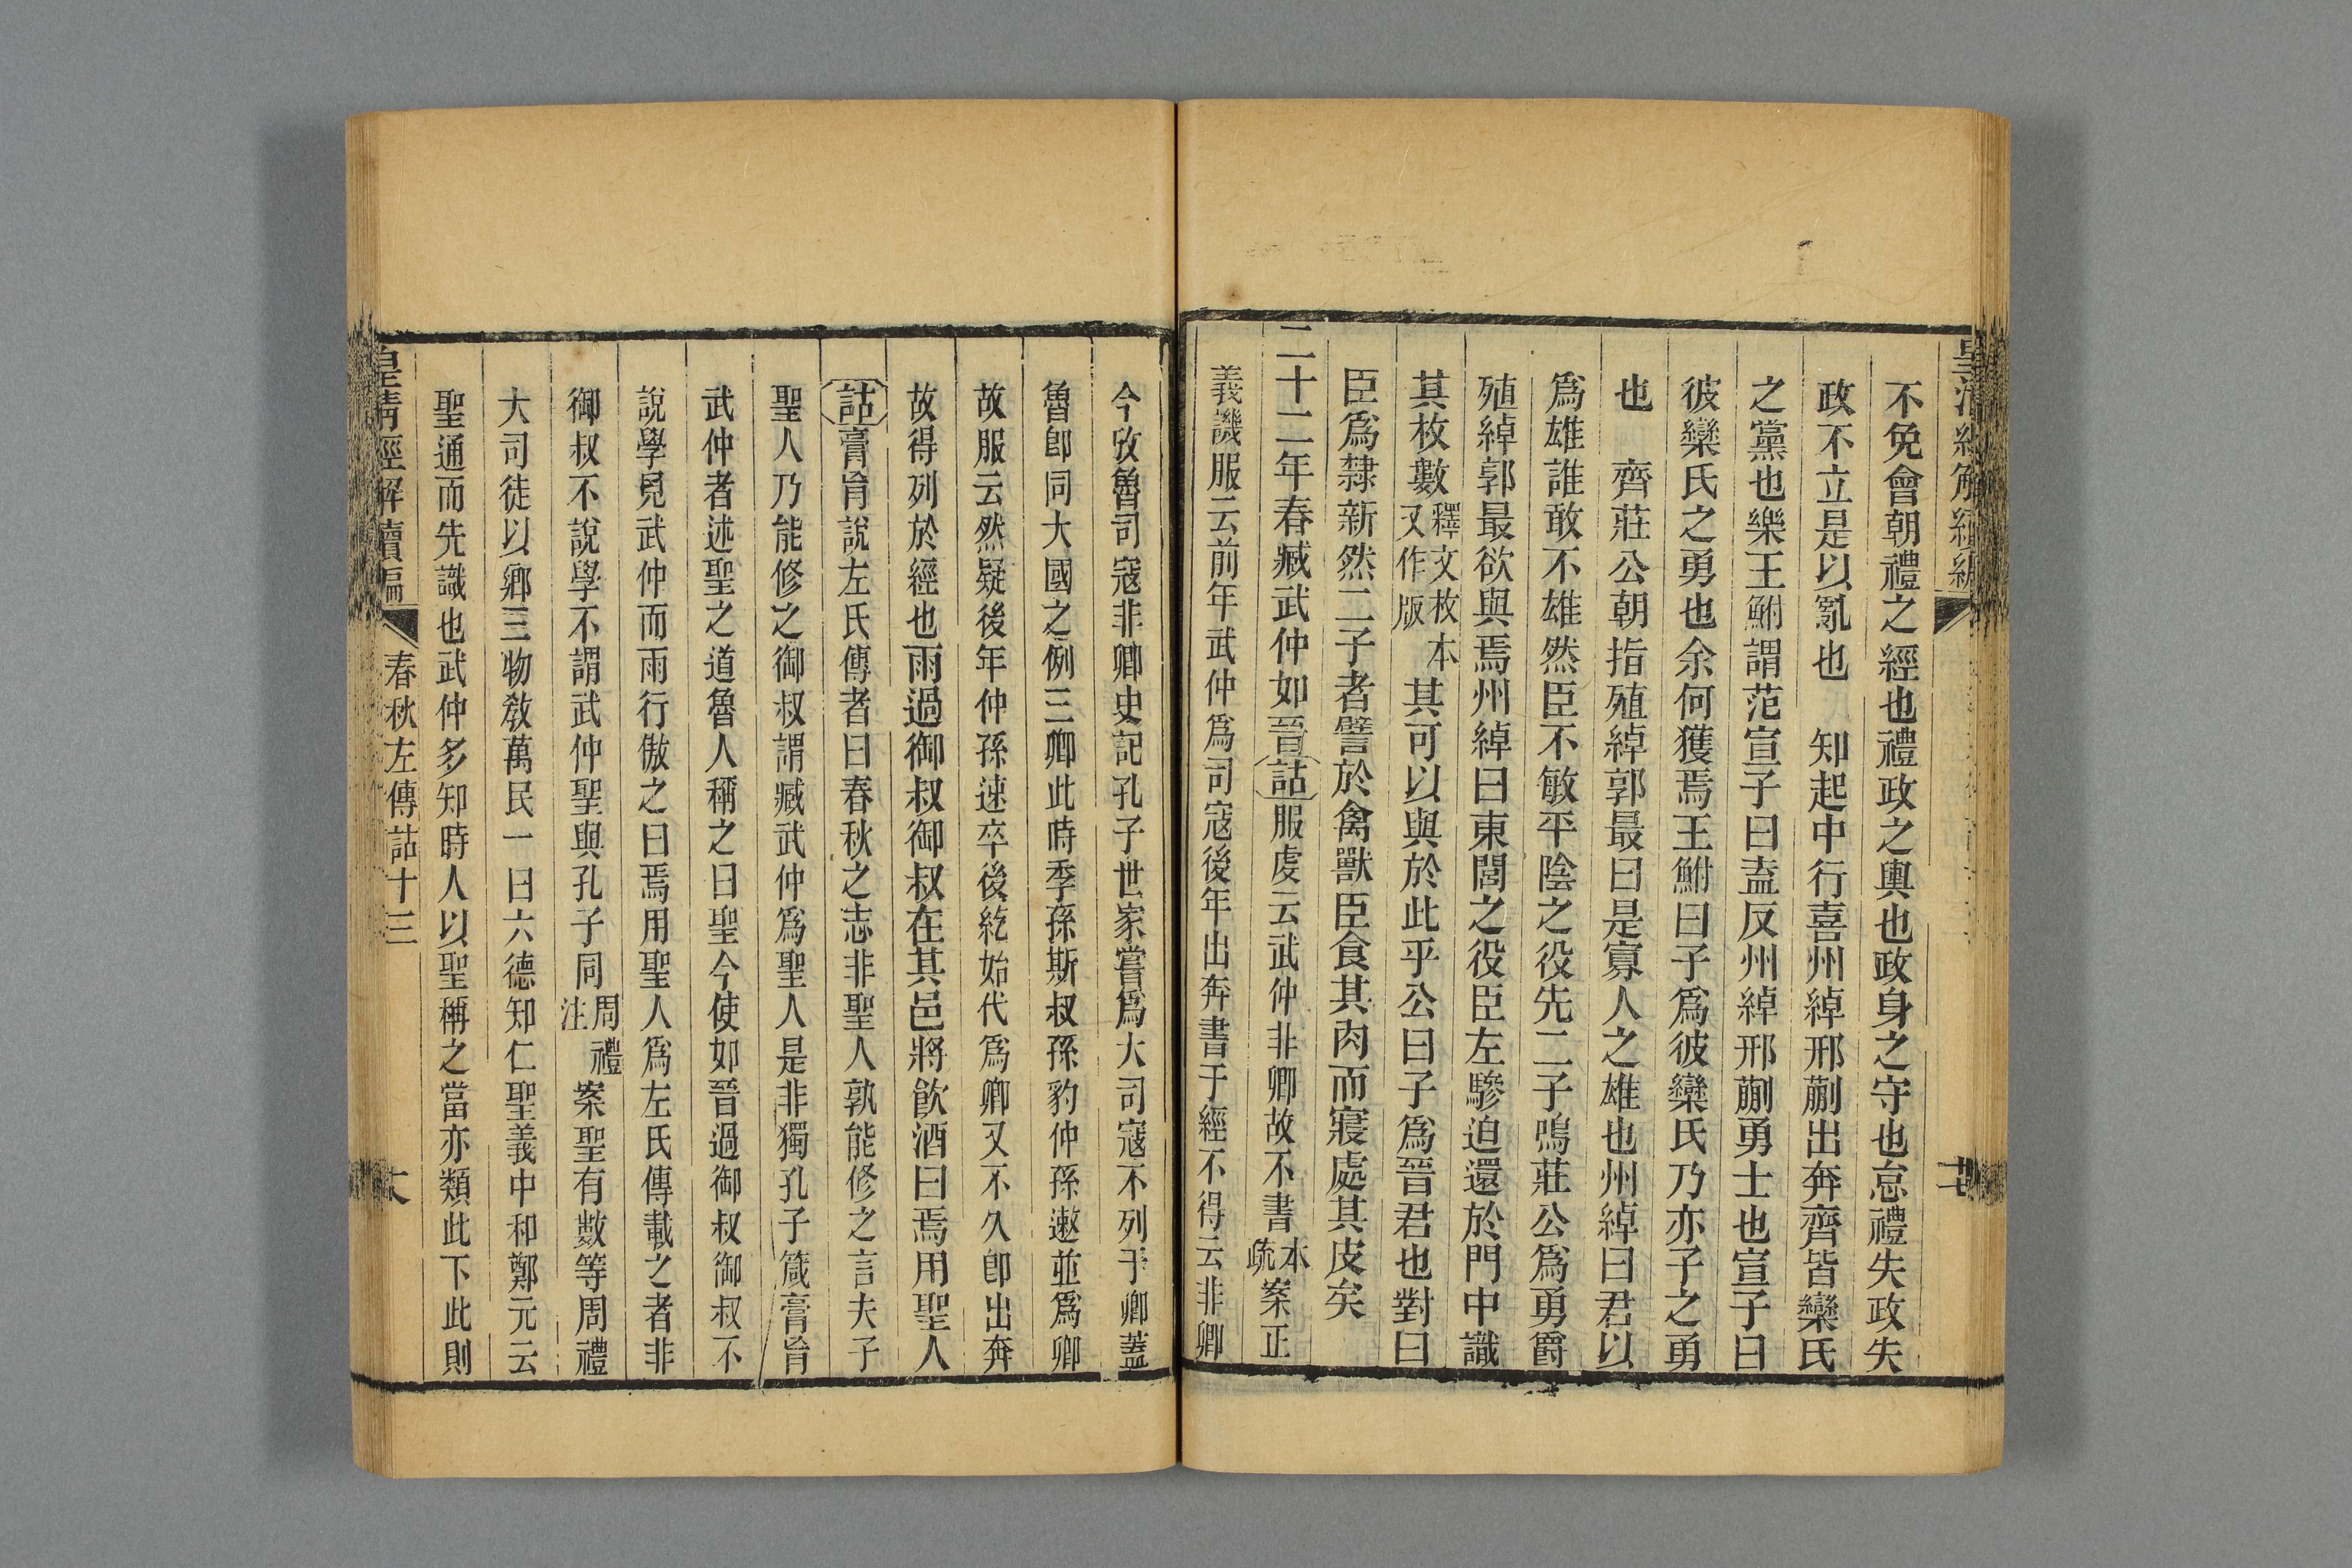 不免會朝禮之經也禮政之輿也政身之守也怠禮失政失
政不立是以亂也　知起中行喜州綽邢蒯出奔齊皆欒氏
之黨也樂王鮒謂范宣子曰盍反州綽邢蒯勇士也宣子曰
彼欒氏之勇也余何獲焉王鮒曰子爲彼欒氏乃亦子之勇
也　齊莊公朝指殖綽郭最曰是寡人之雄也州綽曰君以
爲雄誰敢不雄然臣不敏平陰之役先二子鳴莊公爲勇爵
殖綽郭最欲與焉州綽曰東閭之役臣左驂迫還於門中識
其枚數釋文枚本又作版其可以與於此乎公曰子爲晉君也對曰
臣爲隸新然二子者譬於禽獸臣食其肉而寢處其皮矣
二十二年春臧武仲如晉詁服虔云武仲非卿故不書本疏案正
義譏服云前年武仲爲司寇後年出奔書于經不得云非卿
今攷魯司寇非卿史記孔子世家嘗爲大司寇不列于卿蓋
魯卽同大國之例三卿此時季孫斯叔孫豹仲孫遫並爲卿
故服云然疑後年仲孫速卒後紇始代爲卿又不久卽出奔
故得列於經也雨過御叔御叔在其邑將飮酒曰焉用聖人
詁膏肓說左氏傳者曰春秋之志非聖人孰能修之言夫子
聖人乃能修之御叔謂臧武仲爲聖人是非獨孔子箴膏肓
武仲者述聖之道魯人稱之曰聖今使如晉過御叔御叔不
說學見武仲而雨行傲之曰焉用聖人爲左氏傳載之者非
御叔不說學不謂武仲聖與孔子同周禮注案聖有數等周禮
大司徒以鄉三物敎萬民一曰六德知仁聖義中和鄭元云
聖通而先識也武仲多知時人以聖稱之當亦類此下此則
皇淸經解續編
春秋左傳詁十三